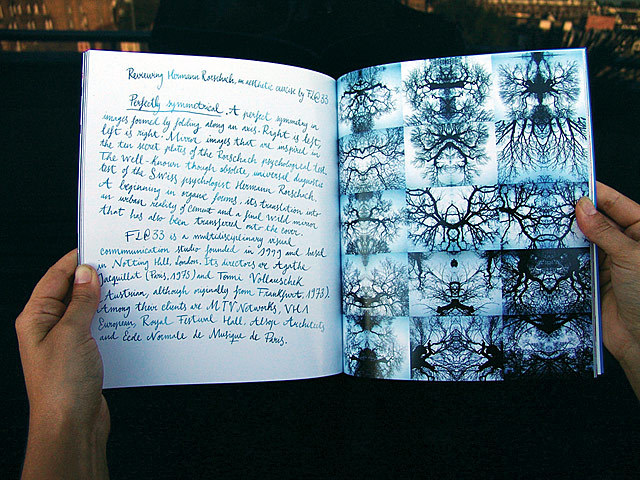 Reviewing Hermann Rorschach, an aesthetic exercise by FL@33
Perfectly symmetrical. A perfect symmetry in
images formed by folding along an axis. Right is left,
left is right. Mirror images that are inspired in
the ten secret plates of the Rorschach psychological test.
The well-known though absolute, universal diagnostic
test of the Swiss psychologist Hermann Rorschach.
A beginning in organic forms, its translation into
an urban reality of cement and a final wild mirror
that has also been transferred onto the cover.
FL@33 is a multidisciplinary visual
communication studio founded in 1999 and based
in Notting Hill, London. Its directors are Agathe
Jacquillat (Paris, 1975) and Tomi Vollauschek
(Austrian, although originally from Frankfurt, 1973).
Among their clients are MTV Networks, VH-1
European, Royal Festival Hall, Alsop Architects
and École Normale de Musique de Paris.